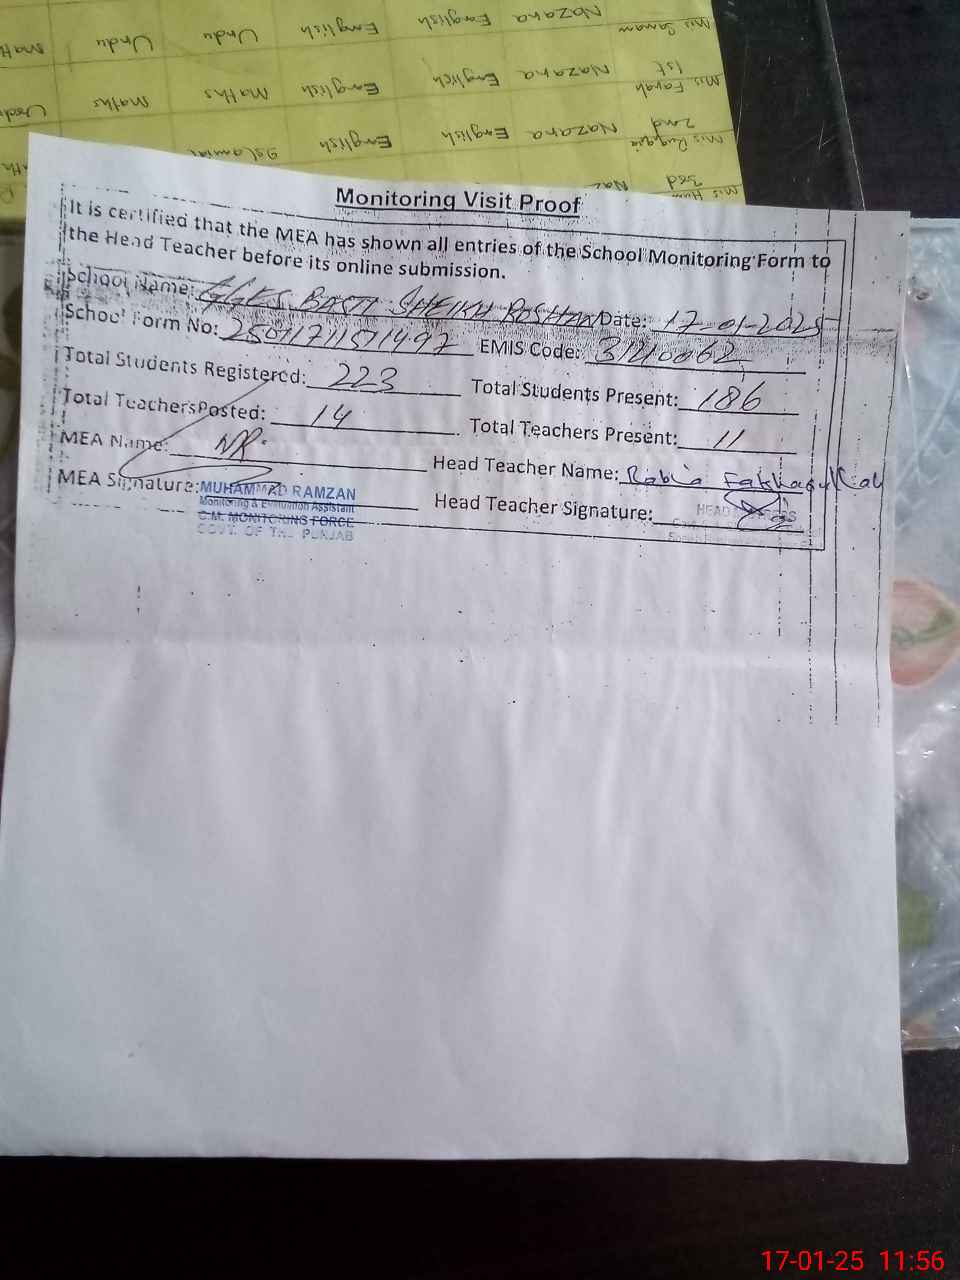 Miss Sanam Nazara English English Urdu Urdu Math
1st
Miss Farah Nazara English English Maths Maths Urdu
2nd
Miss Ruqqia Nazara English English Islamiat
3rd
Monitoring Visit Proof
It is certified that the MEA has shown all entries of the School Monitoring Form to
the Head Teacher before its online submission.
School Name: GGES BASTI SHEIKH ROSHAN Date: 17-01-2025
School Form No: EMIS Code: 31210062
Total Students Registered: 223 Total Students Present: 186
Total Teachers Posted: 14 Total Teachers Present: 11
MEA Name: MR. Head Teacher Name: Rabia
MEA Signature: MUHAMMAD RAMZAN Head Teacher Signature: HEAD MISTRESS
Monitoring & Evaluation Assistant
C.M. MONITORING FORCE
GOVT. OF THE PUNJAB
17-01-25 11:56